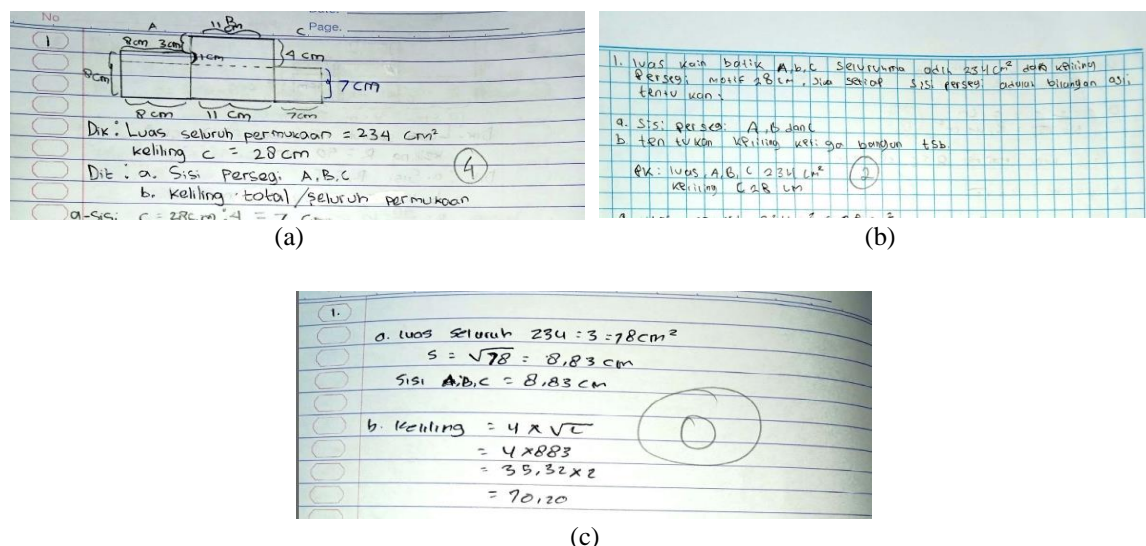 No
Page.
1
A
11 cm
B
C
8cm 3cm
1cm
4 cm
8cm
7 cm
8 cm 11 cm 7cm
Dik : Luas seluruh permukaan = 234 cm²
keliling c = 28 cm
Dit : a. Sisi persegi A, B, C
b. keliling total / seluruh permukaan
4
a. sisi c = 28cm : 4 = 7 cm
(a)
1. luas kain batik A, b, c seluruhnya adlh 234 cm² dan keliling
persegi motif 28 cm. Jika setiap sisi persegi adalah bilangan asli
tentukan :
a. sisi persegi A, B dan C
b tentukan keliling ketiga bangun tsb
2
luas A, B, C 234 cm²
keliling C 28 cm
(b)
1.
a. luas seluruh 234 : 3 = 78cm²
s = √78 = 8,83 cm
Sisi A,B,C = 8,83 cm
b. keliling = 4 x √
= 4 x 883
= 35,32 x 2
= 70,20
(c)